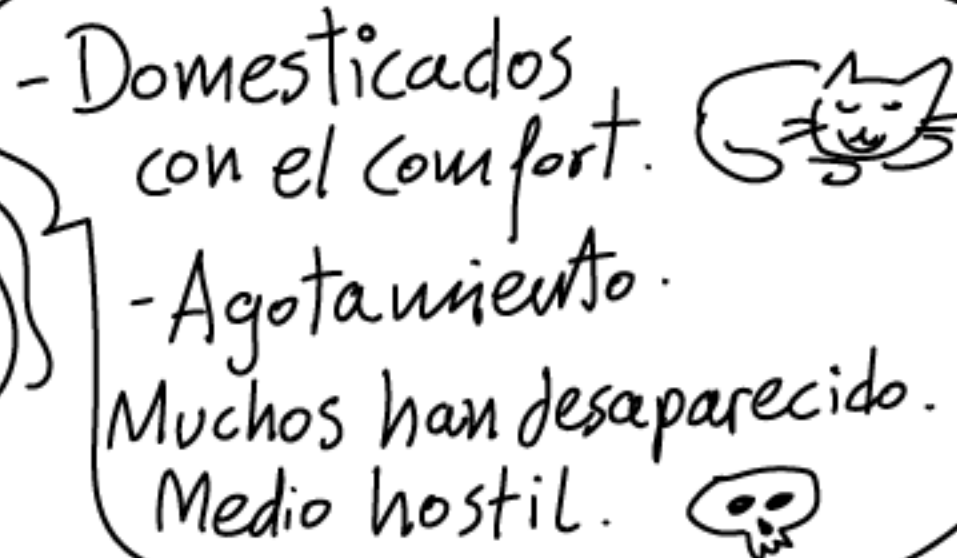 - Domesticados
con el comfort.
- Agotamiento.
Muchos han desaparecido.
Medio hostil.